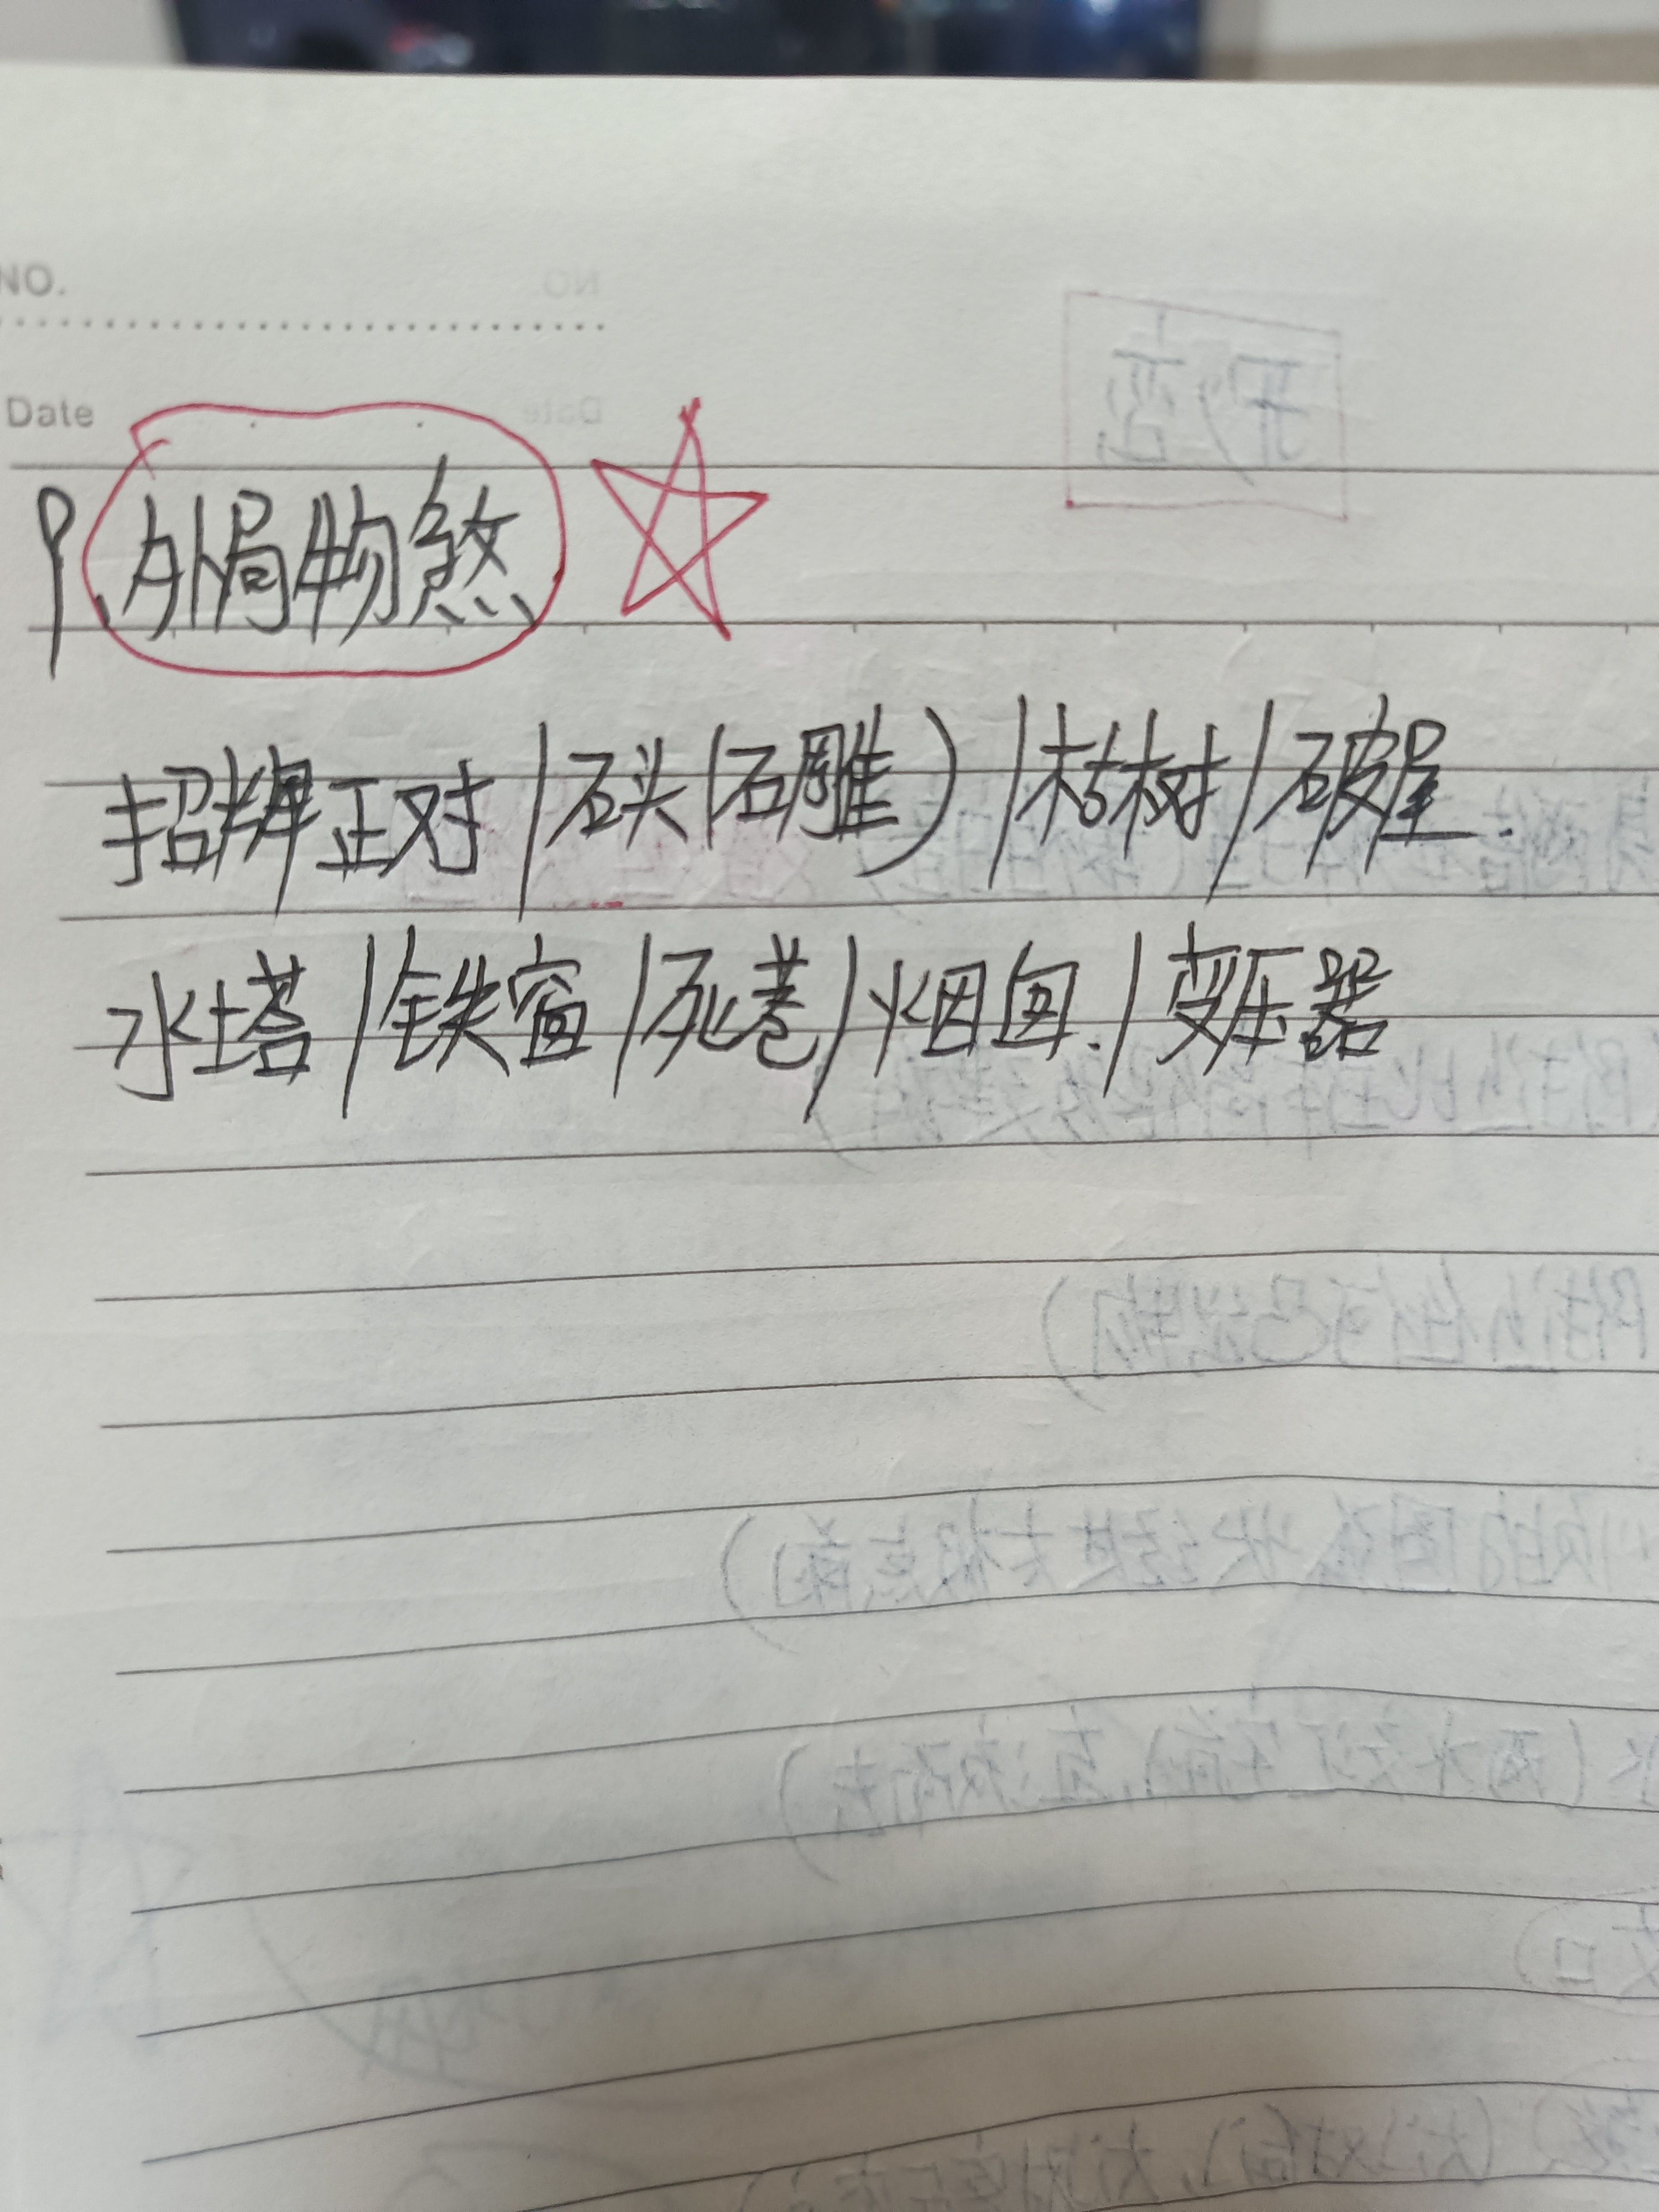 NO.
Date
外局物煞
招牌正对/石头(石雕)/枯树/破屋.
水塔/铁窗/死巷/烟囱./变压器